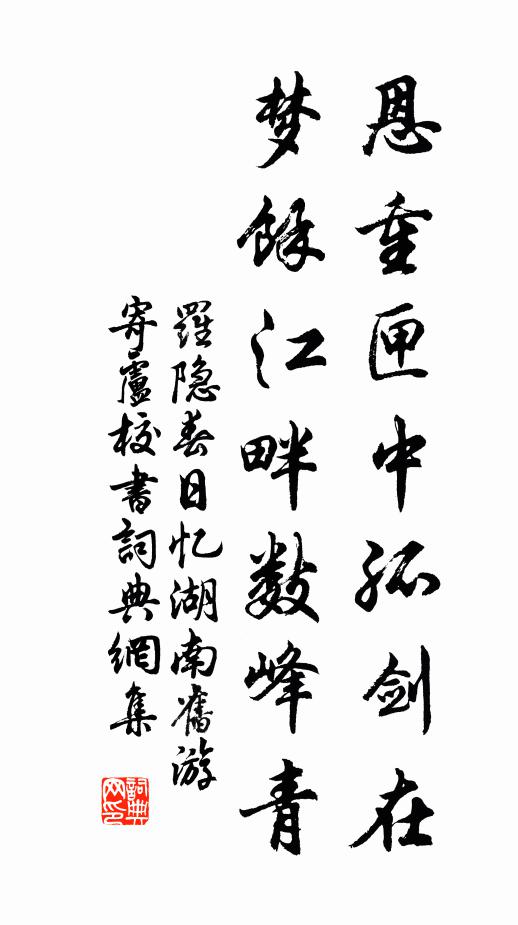 恩重匣中孤剑在
梦馀江畔数峰青
羅隐春日忆湖南舊游
寄盧校書詞典網集
詞典
网印